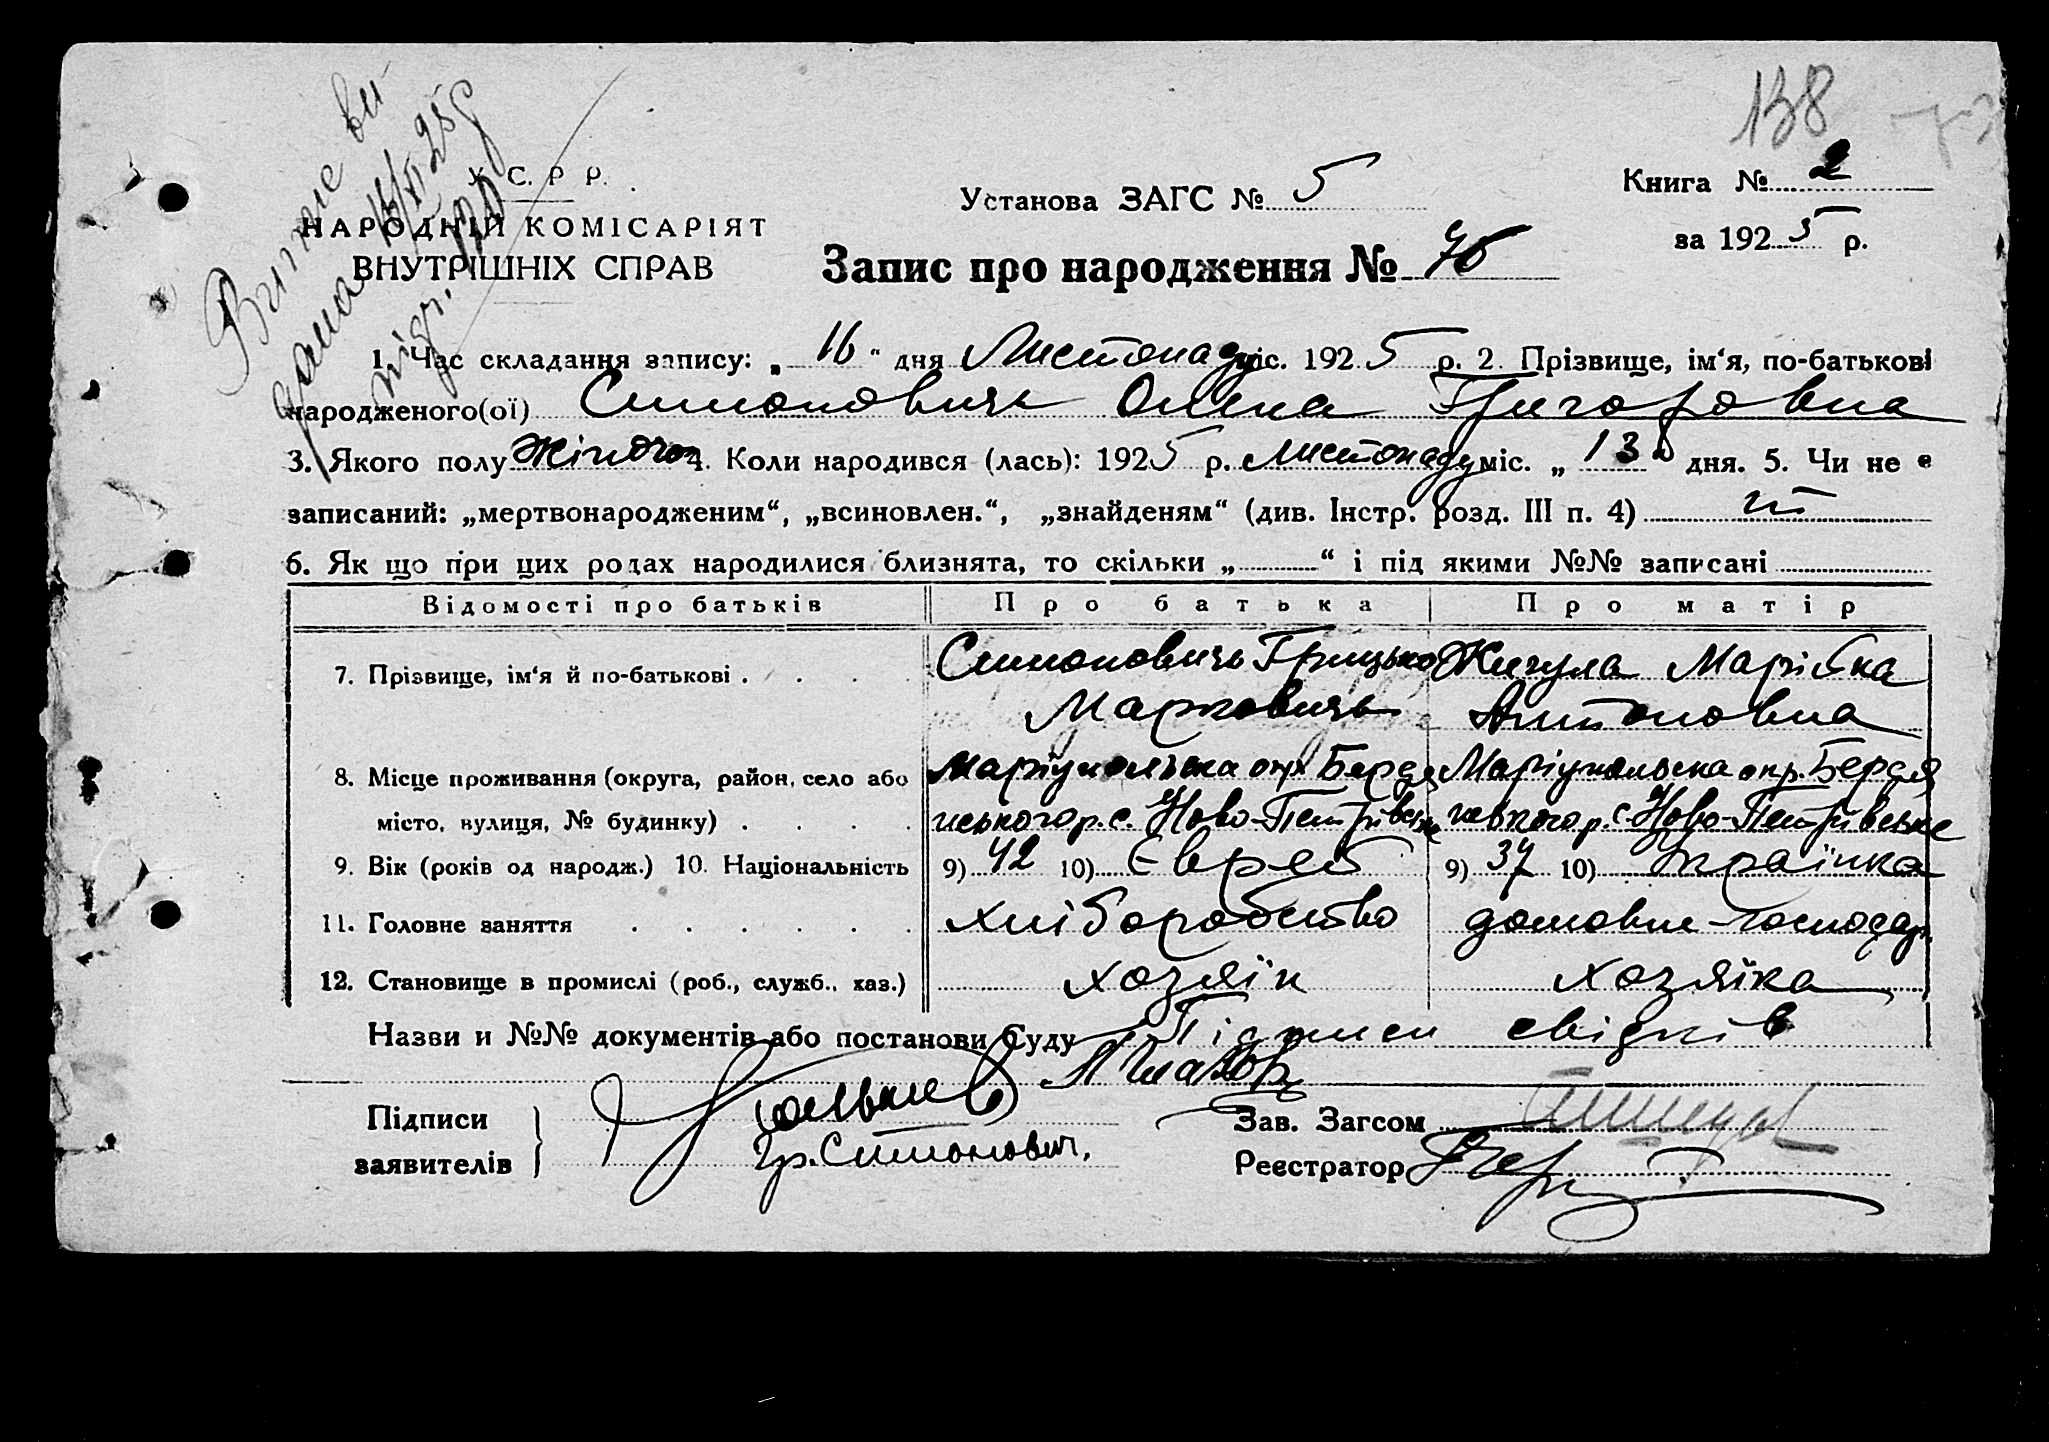 138
Витяг ви-
дана 16/XI 25 р
У. С. Р. Р.
НАРОДНІЙ КОМІСАРІЯТ
ВНУТРІШНІХ СПРАВ
Установа ЗАГС № 5
Книга № 2
за 1925 р.
Запис про народження № 76
1. Час складання запису: „ 16 “ дня Листопаду міс. 1925 р. 2. Прізвище, ім‘я, по-батькові
народженого(ої) Симонович Олена Григоровна
3. Якого полу Жіночо 4. Коли народився (лась): 1925 р. листопаду міс. „ 13 “ дня. 5. Чи не є
записаний: „мертвонародженим“, „всиновлен.“, „знайденям“ (див. Інстр. розд. III п. 4)
6. Як що при цих родах народилися близнята, то скільки „ “ і під якими №№ записані
Відомості про батьків Про батька Про матір
7. Прізвище, ім‘я й по-батькові Симоновичь Грицько Жигула Марійка
Марковичь Антоновна
8. Місце проживання (округа, район, село або Маріупольська окр. Бердя Маріупольска окр. Бердя
місто, вулиця, № будинку) нського р. с. Ново-Петрівське нського р. с. Ново-Петрівське
9. Вік (років од народж.) 10. Національність 9) 42 10) Єврей 9) 37 10) Українка
11. Головне заняття хліборобство домовле-господар.
12. Становище в промислі (роб., служб., хаз.) хозяїн хозяїка
Назви и №№ документів або постанови Суду Підписи свідків
Підписи
заявителів Гр. Симонович.
Зав. Загсом
Реєстратор